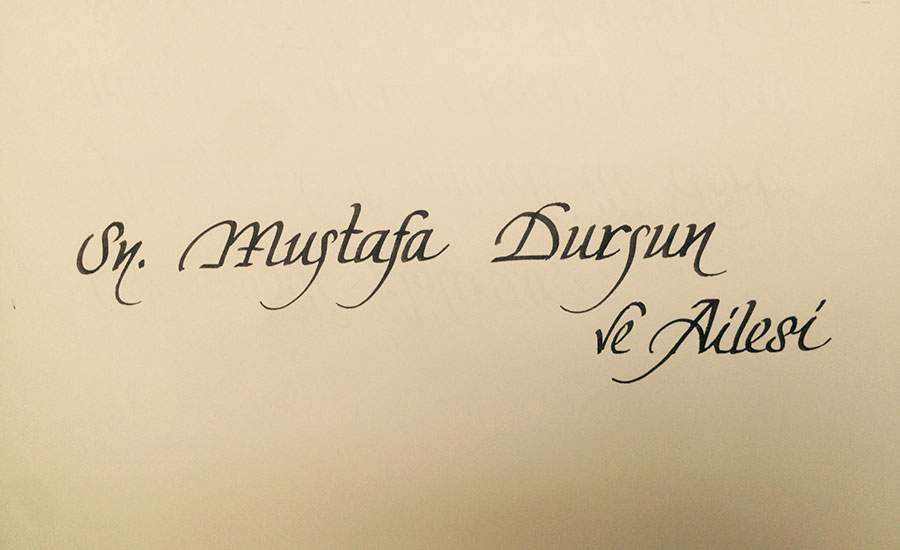 Sn. Mustafa Dursun
ve Ailesi